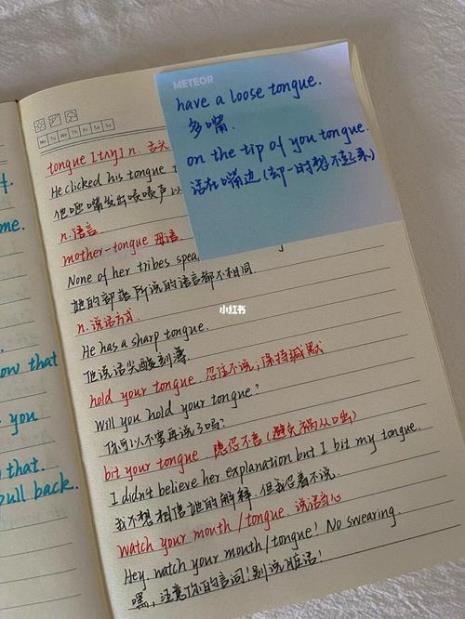 me.
ow that
you
that.
pull back.
Mo Tu We Th Fr Sa Su
tongue [tʌŋ] n. 舌头
He clicked his tongue
他咂嘴发出啧啧声
n.语言
mother-tongue 母语
None of her tribes spea
她的部落所说的语言都不相同.
n.说话方式
He has a sharp tongue.
他说话尖酸刻薄
hold your tongue 忍住不说,保持缄默
Will you hold your tongue?
你可以不要再说了吗?
bit your tongue 隐忍不言(避免祸从口出)
I didn't believe her explanation but I bit my tongue.
我不想相信她的解释,但我忍着不说.
watch your mouth/tongue 说话当心
Hey, watch your mouth/tongue! No swearing.
嘿,注意你的言词!别说脏话!
METEOR
have a loose tongue.
多嘴.
on the tip of you tongue.
话在嘴边(却一时想不起来)
小红书